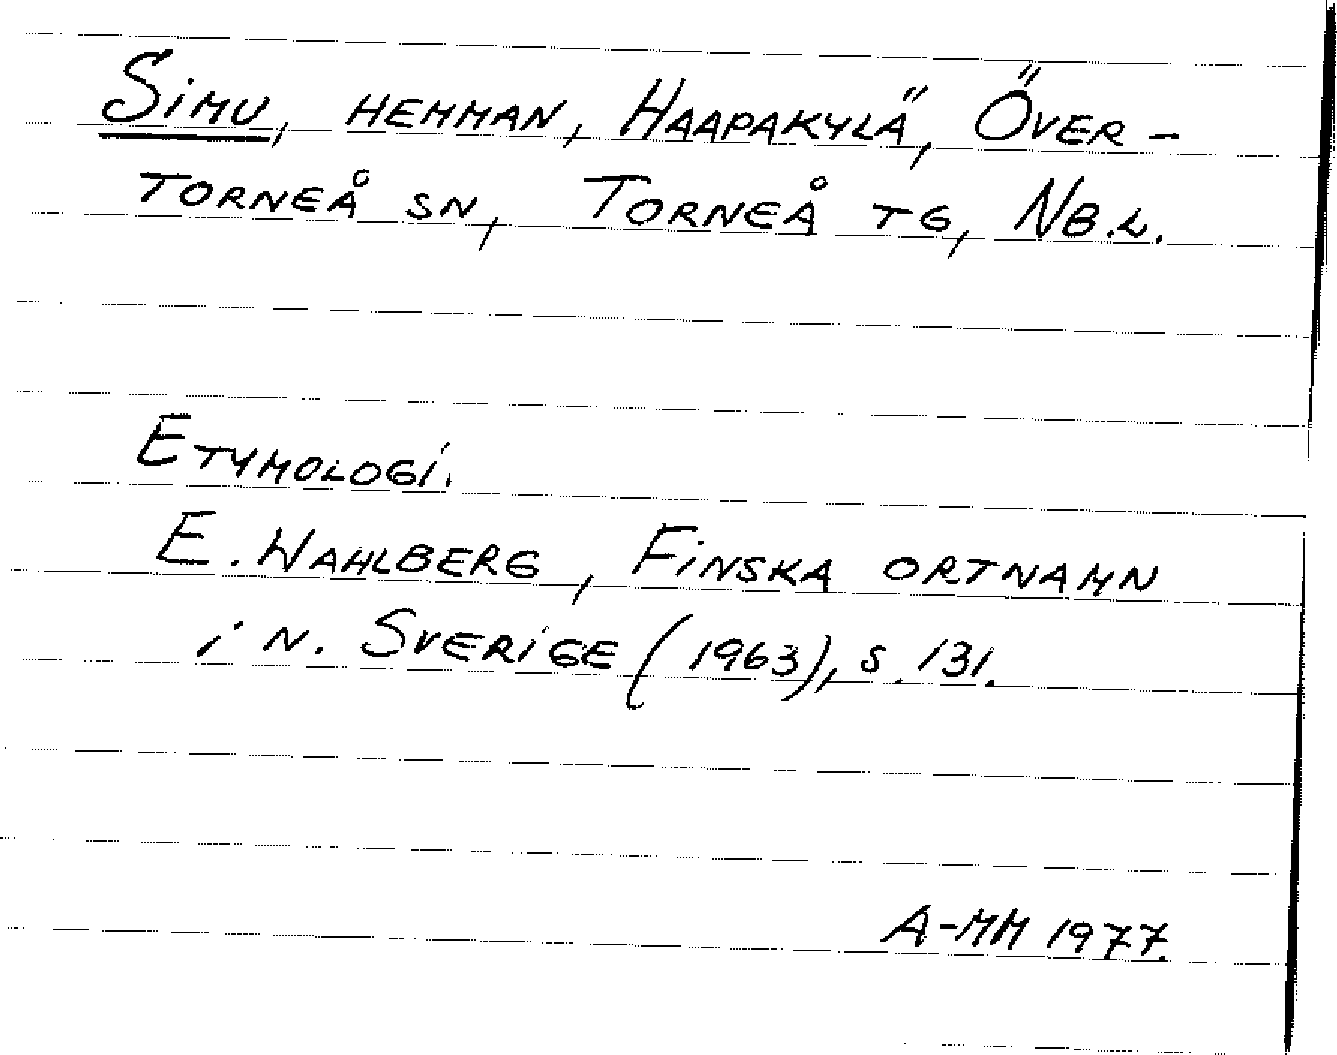 Simu, hemman, Haapakylä, Över-
torneå sn, Torneå tg, Nb.l.
Etymologi.
E. Wahlberg, Finska ortnamn
i n. Sverige (1963), s. 131.
A-MM 1977.